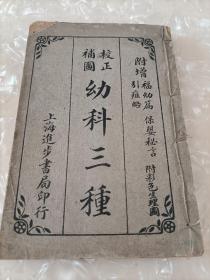 附增福幼篇 保嬰秘言 附彩色生理圖
引痘略
校正
補圖
幼科三種
上海進步書局印行